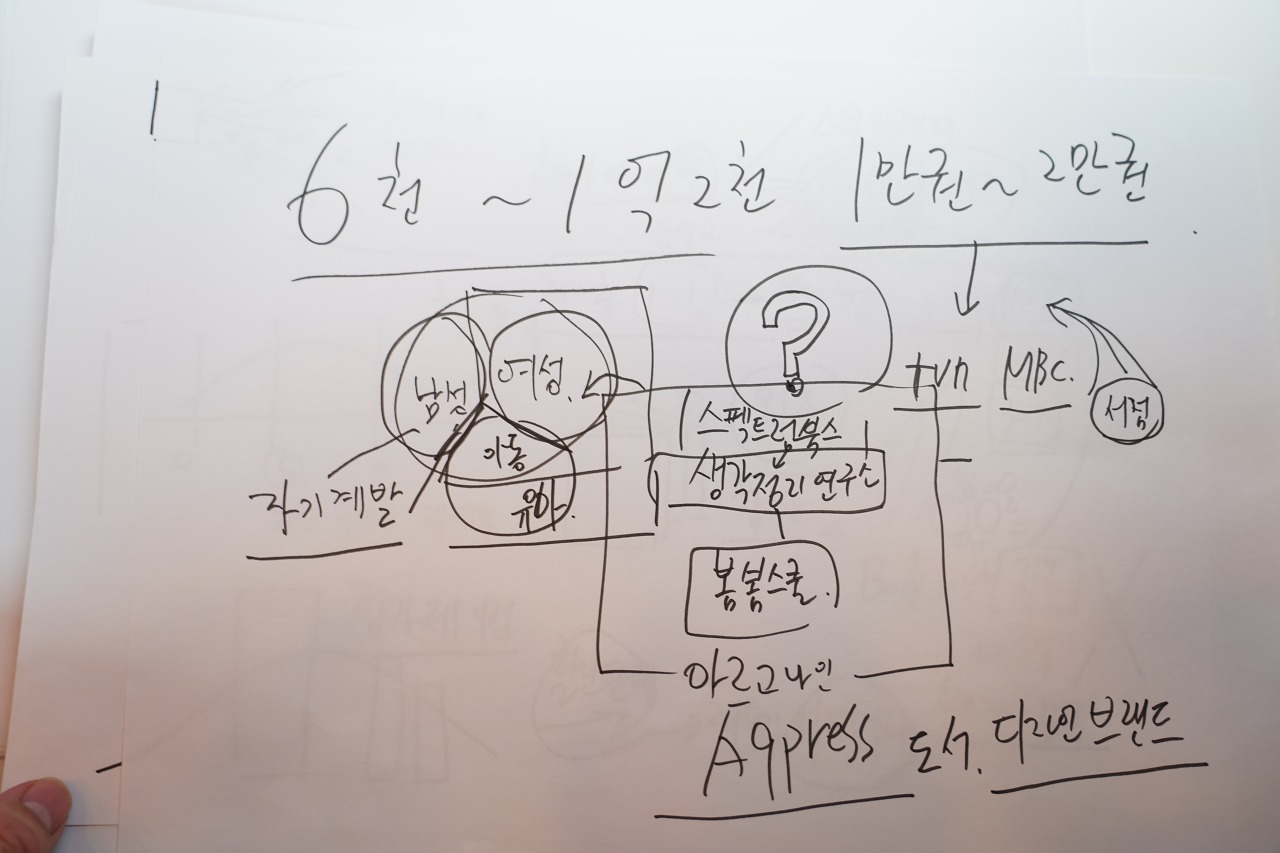 1
6천 ~ 1억2천 1만권 ~ 2만권
?
남성 여성
tvn MBC. 서점
스펙트럼북스
아동
생각정리연구소
자기계발 유아.
봄봄스쿨.
아르고나인
A9press 도서. 디자인브랜드